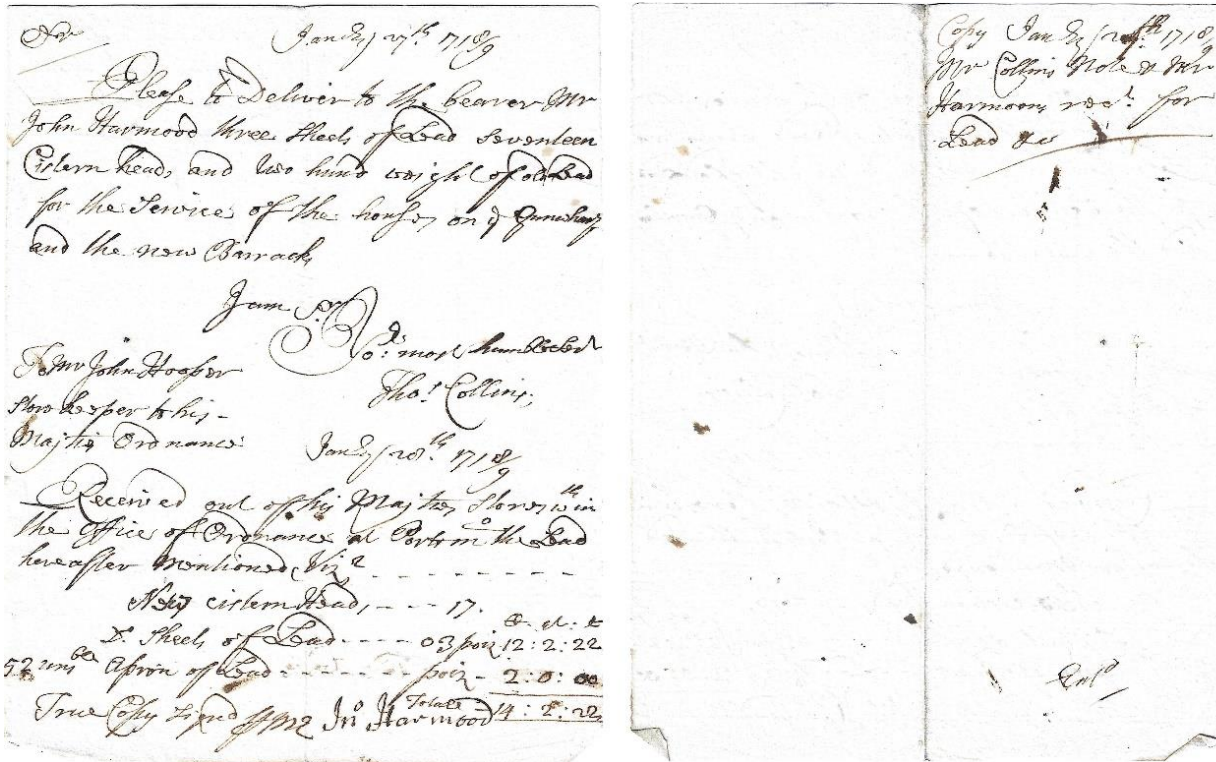 Sr
Jan ry 27th 1718/9
Please to Deliver to the bearer Mr
John Harmood three Sheets of Lead Seventeen
Cistern heads and two hund weight of old Lead
for the Service of the houses on ye Gunwharf
and the new Barracks
I am Sr
Yor: most humble
Thos Collins
To Mr John Hooper
Storekeeper to his
Majties Ordnance
Jan ry 28th 1718/9
Received out of his Majties Stores wth in
the Office of Ordnance at Portsmo the Lead
hereafter mentioned Vizt
New cistern Heads --- 17.
Do Sheets of Lead ---- 03 poiz 12 : 2 : 22
52 Apron of Lead ---- poiz - 2 : 0 : 00
Totall 14 : 2 : 22
True Copy Signd Jno Harmood
Copy Jan ry 28th 1718/9
Mr Collins Note & Mr
Harmoons rect. for
Lead &c
Entd